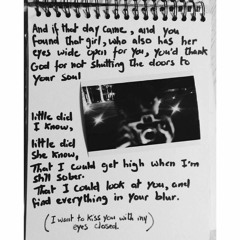 And if that day came, and you
found that girl, who also has her
eyes wide open for you, you'd thank
God for not shutting the doors to
your soul
little did
I know,
little did
she know,
That I could get high when I'm
still sober.
That I could look at you, and
find everything in your blur.
(I want to kiss you with my
eyes closed.)